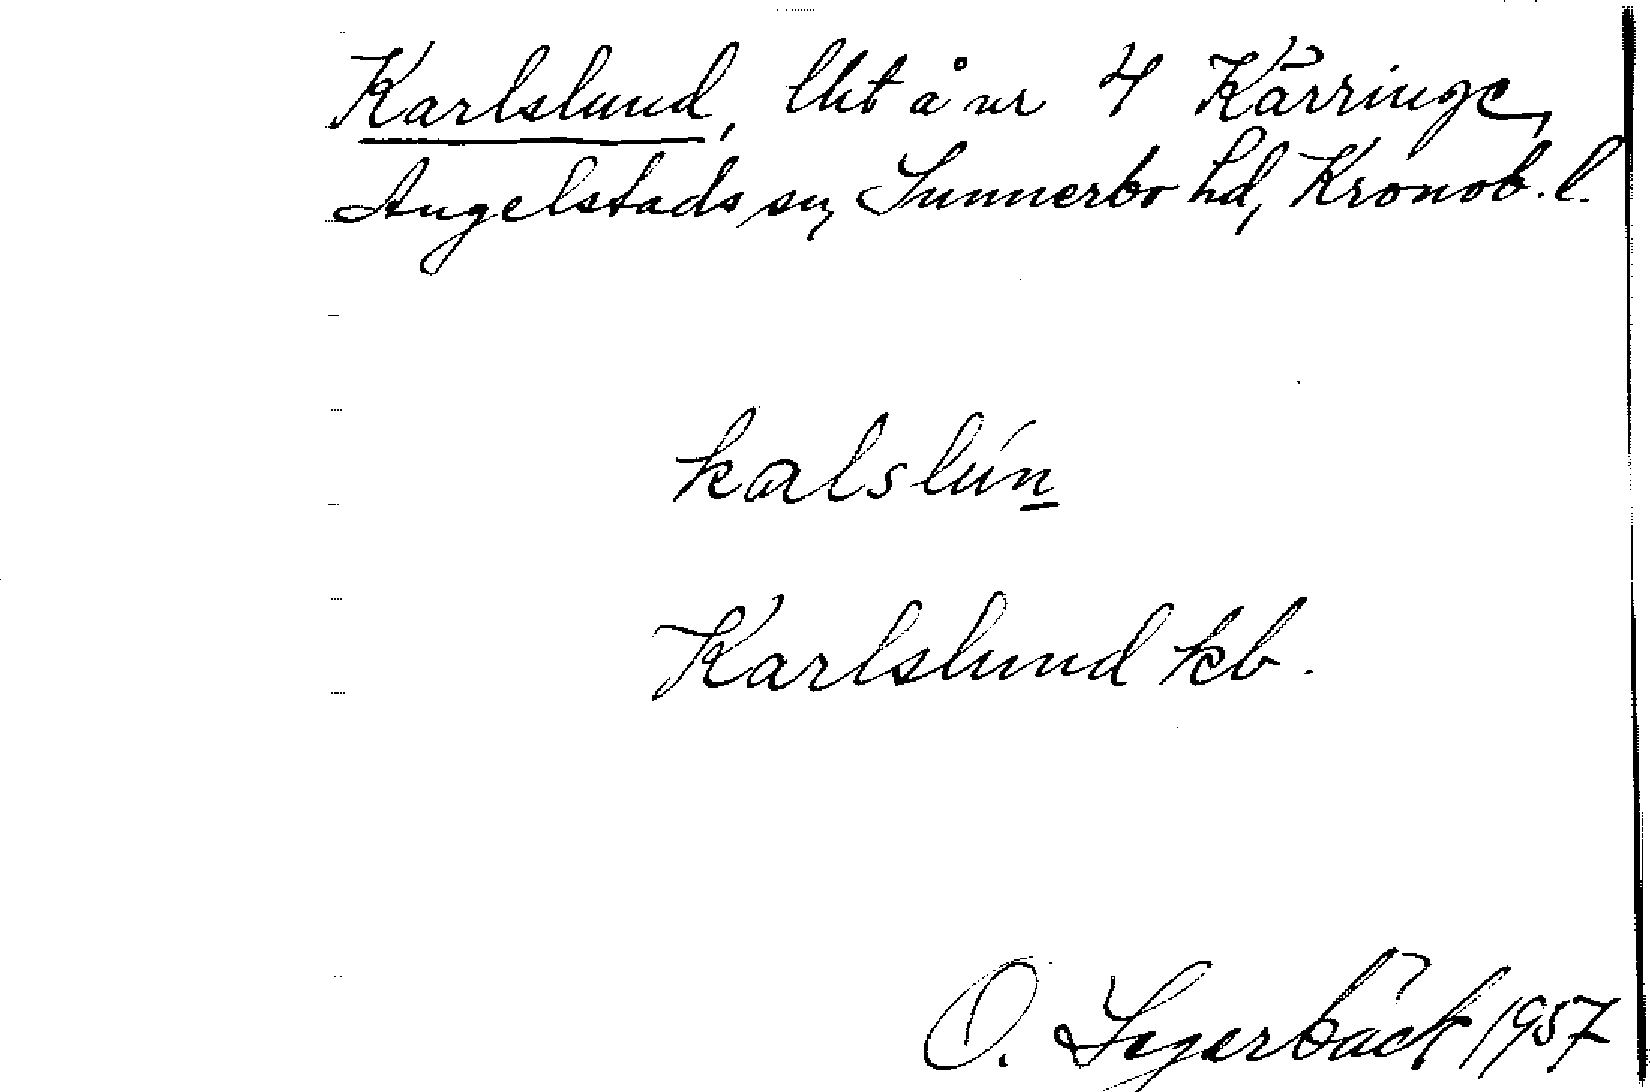 Karlslund, lht å nr 4 Käringe,
Angelstads sn, Sunnerbo hd, Kronob. l.
kalslún
Karlslund kb.
O. Segerbäck 1957